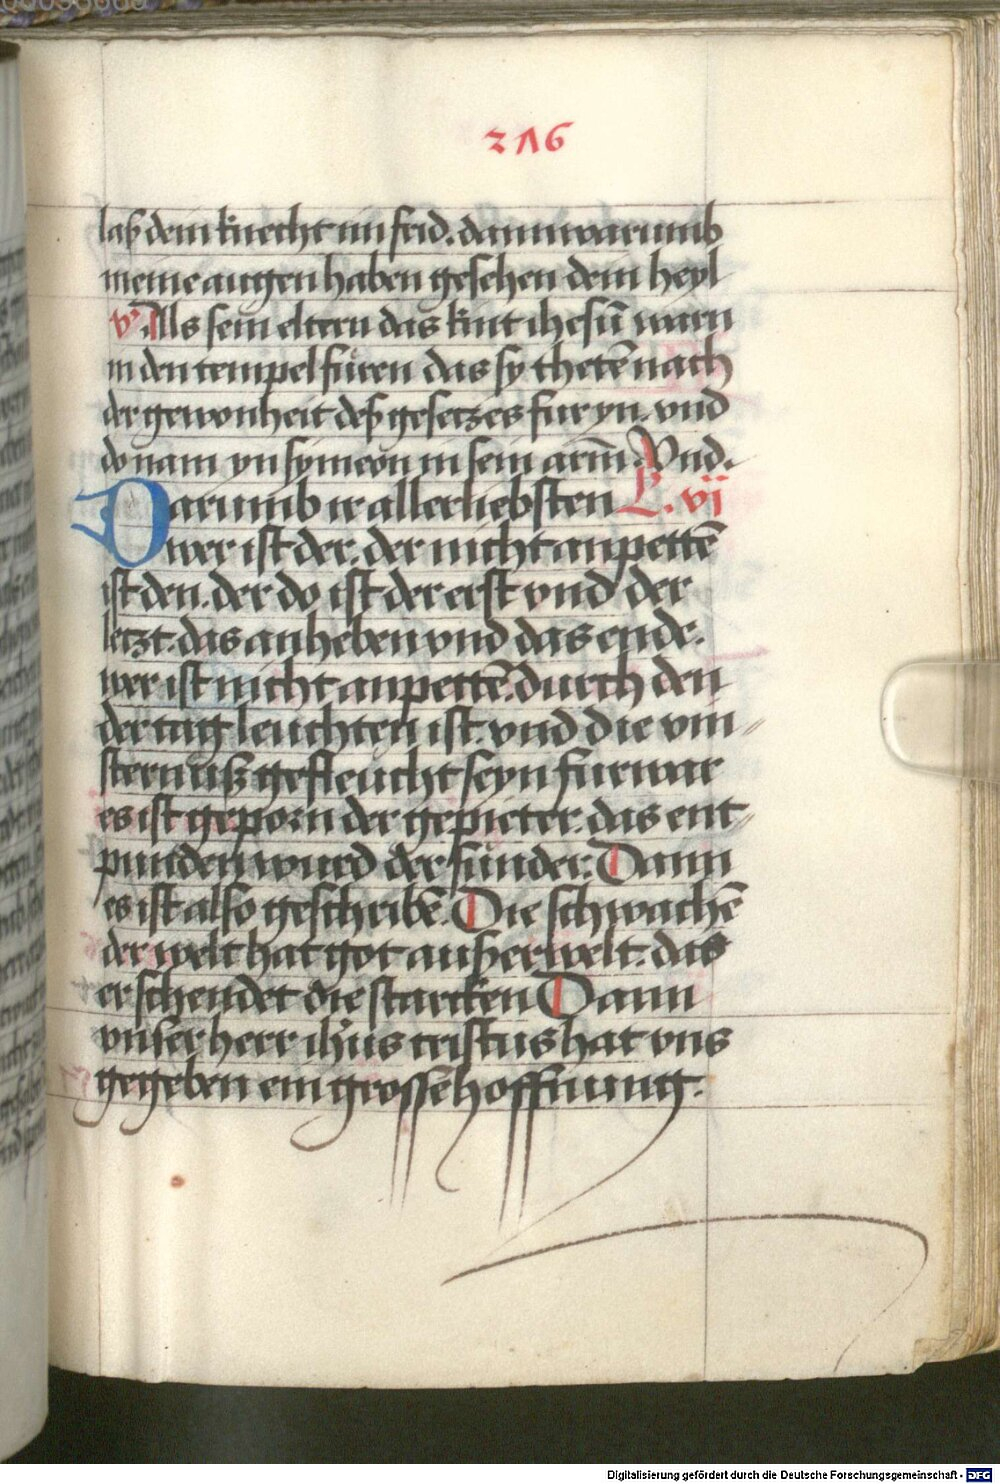 216
laß dein knecht im frid. dann warumb
meine augen haben gesehen dein heyl
v Als sein eltern das kint ihesū warn
in den tempel füren das sy thetē nach
der gewonheit deß gesetzes fur yn. vnd
do nam yn symeon in sein arm̄. Vnd.
Darumb ir allerliebsten L. vij
wer ist der. der nicht anpettē
ist den. der do ist der erst vnd der
letzt. das anheben vnd das ende.
wer ist nicht anpettē. durch den
der tag leuchten ist. vnd die vin
sternusz gefleucht seyn furwar
es ist geporn der gepieter. das ent
punden wurd der sünder. Dann
es ist also geschribē. Die schwachē
der welt hat got außerwelt. das
er schendet die starcken Dann
vnser herr ihūs cristus hat vns
gegeben ein grosse hoffnung.
Digitalisierung gefördert durch die Deutsche Forschungsgemeinschaft - DFG